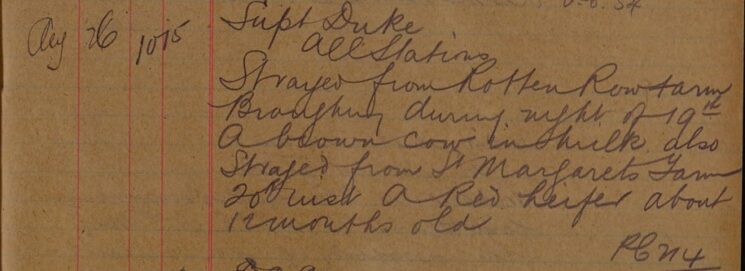 Aug 26 1015 Supt Duke
All Stations
Strayed from Rotten Row Farm
Braughing during night of 19th
A brown cow in milk also
Strayed from St Margarets Farm
20th inst A Red heifer about
12 months old